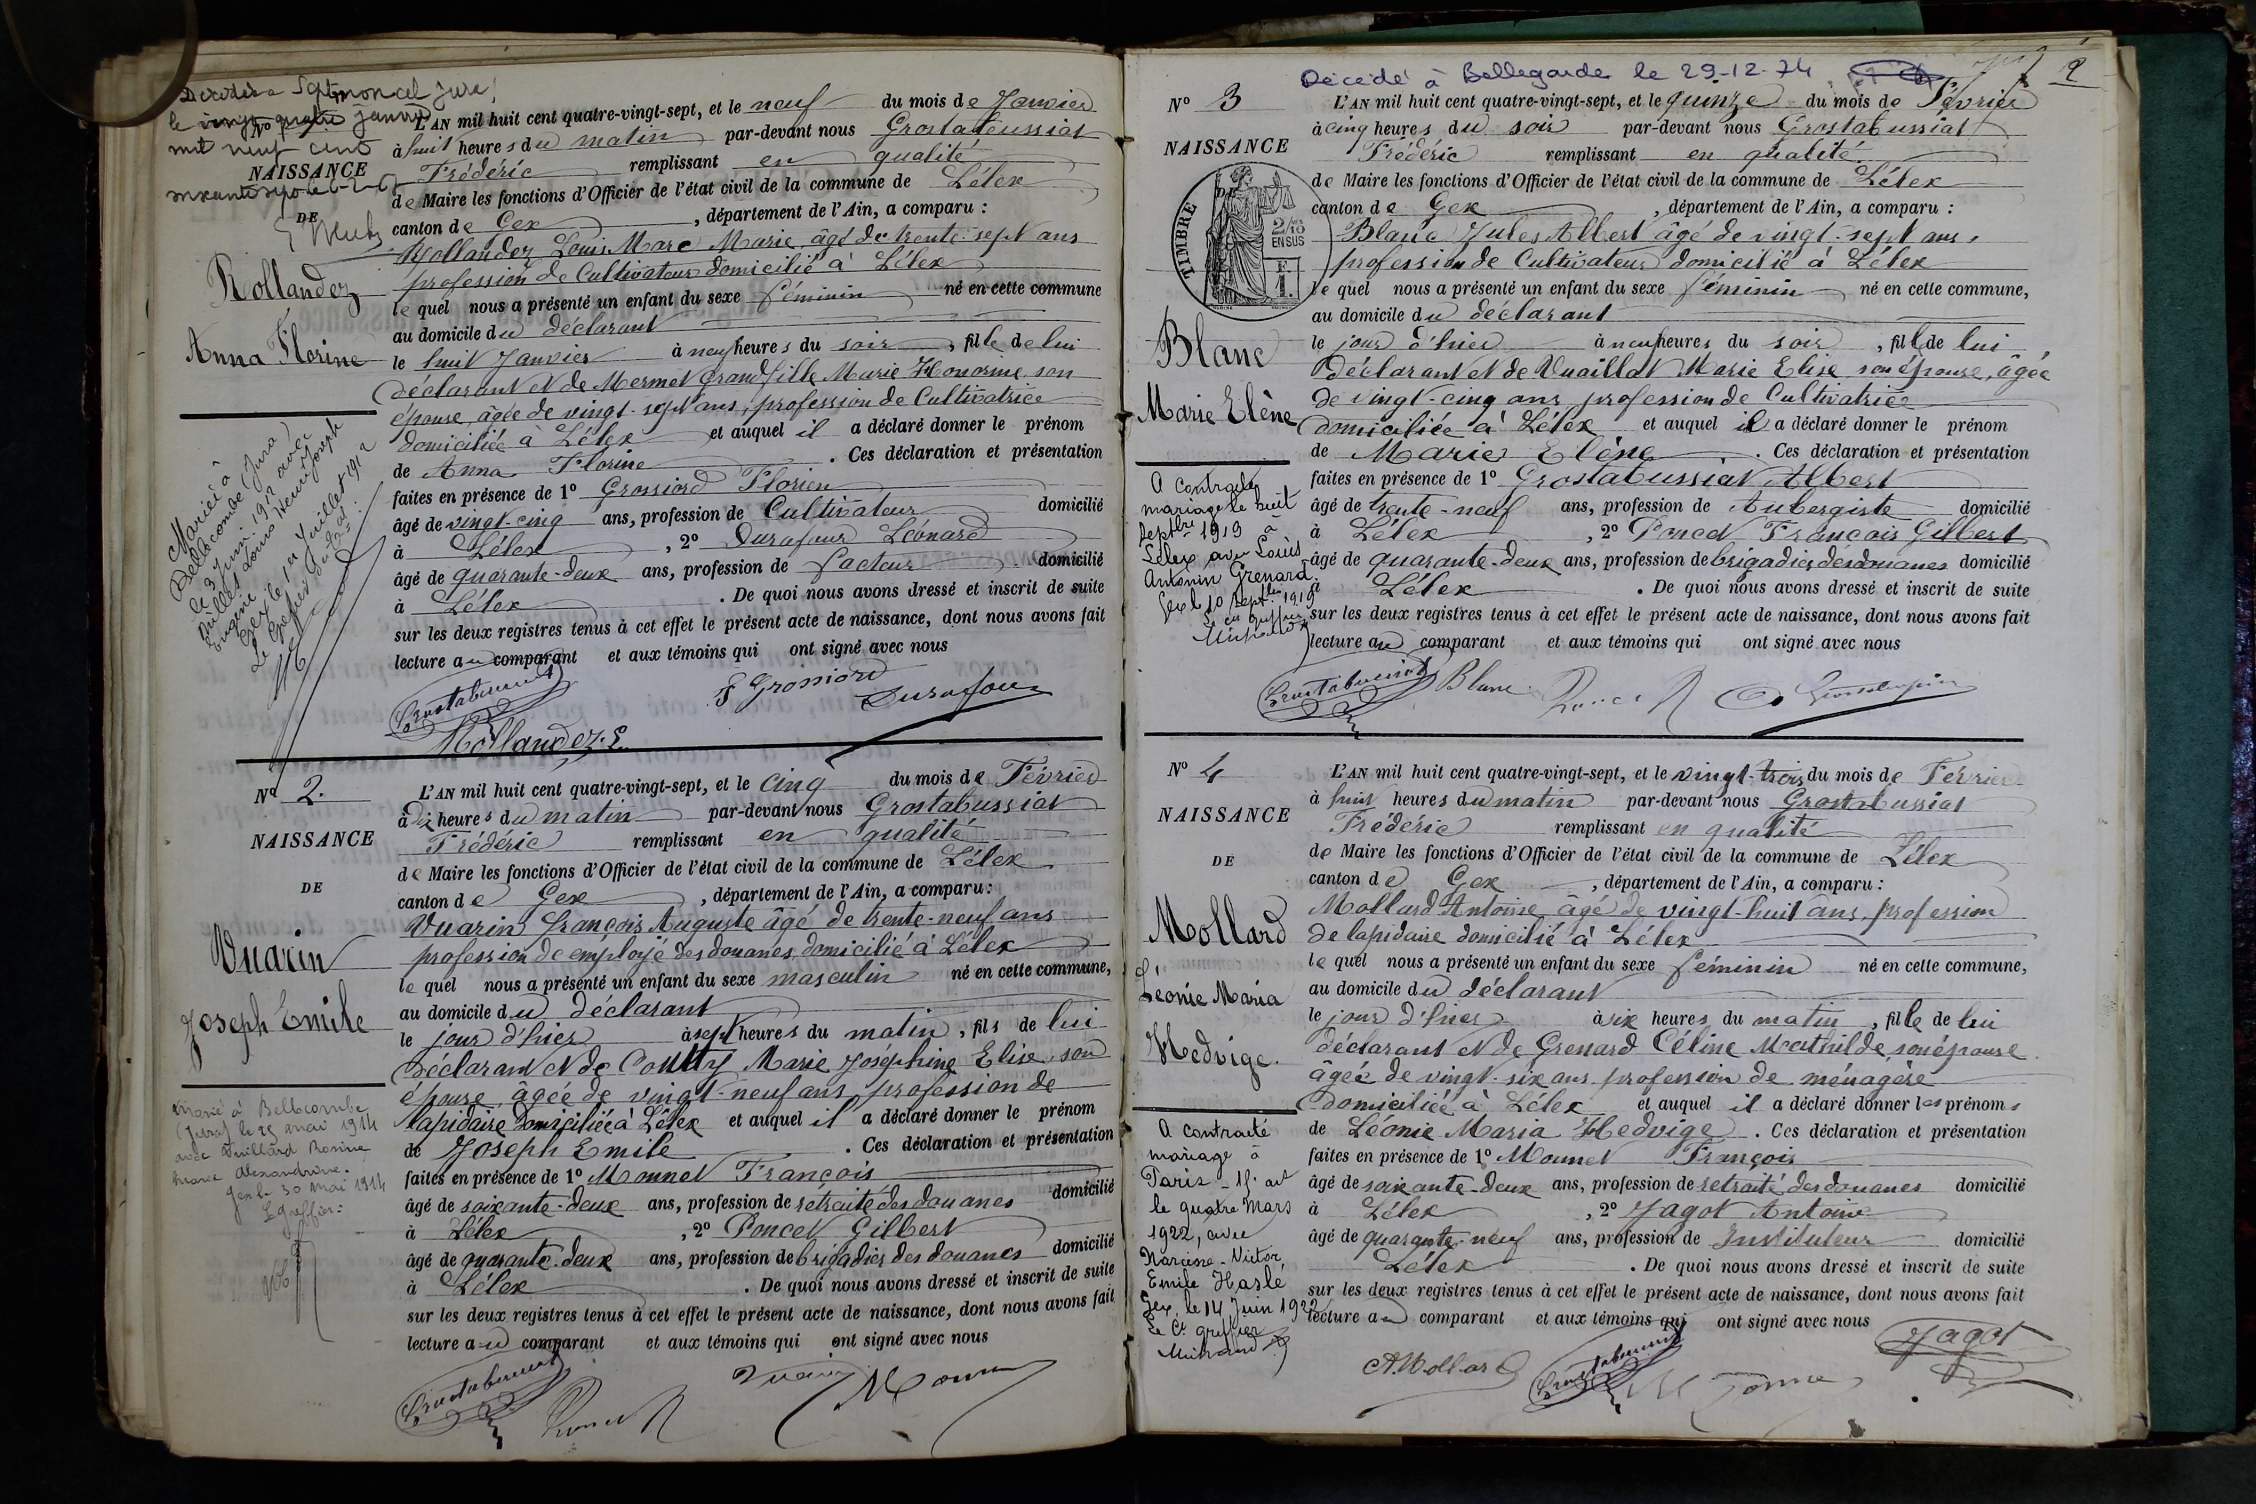 Décédée à Septmoncel Jura
le vingt quatre janvier
mil neuf cent
soixante
No
NAISSANCE
DE
Rollandez
Anna Florine
L'AN mil huit cent quatre-vingt-sept, et le neuf du mois de Janvier
à huit heures du matin par-devant nous Grostabussiat
Frédéric remplissant en qualité
de Maire les fonctions d'Officier de l'état civil de la commune de Lélex
canton de Gex, département de l'Ain, a comparu :
Rollandez Louis Marc Marie âgé de trente-sept ans
profession de Cultivateur domicilié à Lélex
lequel nous a présenté un enfant du sexe féminin né en cette commune
au domicile du déclarant
le huit Janvier à neuf heures du soir, fille de lui
déclarant et de Mermet Grandfille Marie Honorine son
épouse âgée de vingt-sept ans, profession de Cultivatrice
domiciliée à Lélex et auquel il a déclaré donner le prénom
de Anna Florine. Ces déclaration et présentation
faites en présence de 1º Grossiord Florien
âgé de vingt-cinq ans, profession de Cultivateur domicilié
à Lélex, 2º Durafour Léonard
âgé de quarante-deux ans, profession de facteur domicilié
à Lélex. De quoi nous avons dressé et inscrit de suite
sur les deux registres tenus à cet effet le présent acte de naissance, dont nous avons fait
lecture au comparant et aux témoins qui ont signé avec nous
Mariée à
Bellecombe (Jura)
le 3 Juin 1912 avec
Louis Henri Joseph
Eugène
Gex, le 1er Juillet 1912
Grostabussiat
F Grossiord
Durafour
Rollandez. L
No 2.
NAISSANCE
DE
Vuarin
Joseph Emile
L'AN mil huit cent quatre-vingt-sept, et le cinq du mois de Février
à dix heures du matin par-devant nous Grostabussiat
Frédéric remplissant en qualité
de Maire les fonctions d'Officier de l'état civil de la commune de Lélex
canton de Gex, département de l'Ain, a comparu :
Vuarin François Auguste âgé de trente-neuf ans
profession de employé des douanes domicilié à Lélex
lequel nous a présenté un enfant du sexe masculin né en cette commune,
au domicile du déclarant
le jour d'hier à sept heures du matin, fils de lui
déclarant et de Marie Joséphine Elise son
épouse, âgée de vingt-neuf ans profession de
lapidaire domiciliée à Lélex et auquel il a déclaré donner le prénom
de Joseph Emile. Ces déclaration et présentation
faites en présence de 1º Monnet François
âgé de soixante-deux ans, profession de retraité des douanes domicilié
à Lélex, 2º Poncet Gilbert
âgé de quarante-deux ans, profession de brigadier des douanes domicilié
à Lélex. De quoi nous avons dressé et inscrit de suite
sur les deux registres tenus à cet effet le présent acte de naissance, dont nous avons fait
lecture au comparant et aux témoins qui ont signé avec nous
Marié à Bellecombe
(Jura) le mai 1914
avec Rosine
Marie Alexandrine.
Gex le 30 Mai 1914
Le greffier :
Grostabussiat
Poncet
Vuarin
Monnet
Décédé à Bellegarde le 29-12-74
2
No 3
NAISSANCE
DE
TIMBRE
2/10 EN SUS
Blanc
Marie Elène
L'AN mil huit cent quatre-vingt-sept, et le quinze du mois de Février
à cinq heures du soir par-devant nous Grostabussiat
Frédéric remplissant en qualité
de Maire les fonctions d'Officier de l'état civil de la commune de Lélex
canton de Gex, département de l'Ain, a comparu :
Blanc Jules Albert âgé de vingt-sept ans,
profession de Cultivateur domicilié à Lélex
lequel nous a présenté un enfant du sexe féminin né en cette commune,
au domicile du déclarant
le jour d'hier à neuf heures du soir, fille de lui
déclarant et de Vuaillat Marie Elise son épouse, âgée
de vingt-cinq ans profession de Cultivatrice
domiciliée à Lélex et auquel il a déclaré donner le prénom
de Marie Elène. Ces déclaration et présentation
faites en présence de 1º Grostabussiat Albert
âgé de trente-neuf ans, profession de Aubergiste domicilié
à Lélex, 2º Poncet François Gilbert
âgé de quarante-deux ans, profession de brigadier des douanes domicilié
à Lélex. De quoi nous avons dressé et inscrit de suite
sur les deux registres tenus à cet effet le présent acte de naissance, dont nous avons fait
lecture au comparant et aux témoins qui ont signé avec nous
A contracté
mariage le huit
Septbre 1919 à
Lélex avec Louis
Antonin Grenard.
Gex le 10 Septbre 1919
Grostabussiat
Blanc
Poncet
No 4
NAISSANCE
DE
Mollard
Léonie Maria
Hedvige.
L'AN mil huit cent quatre-vingt-sept, et le vingt-trois du mois de Février
à huit heures du matin par-devant nous Grostabussiat
Frédéric remplissant en qualité
de Maire les fonctions d'Officier de l'état civil de la commune de Lélex
canton de Gex, département de l'Ain, a comparu :
Mollard Antoine âgé de vingt-huit ans, profession
de lapidaire domicilié à Lélex
lequel nous a présenté un enfant du sexe féminin né en cette commune,
au domicile du déclarant
le jour d'hier à six heures du matin, fille de lui
déclarant et de Grenard Céline Mathilde, son épouse
âgée de vingt-six ans profession de ménagère
domiciliée à Lélex et auquel il a déclaré donner les prénoms
de Léonie Maria Hedvige. Ces déclaration et présentation
faites en présence de 1º Monnet François
âgé de soixante-deux ans, profession de retraité des douanes domicilié
à Lélex, 2º Jagot Antoine
âgé de quarante-neuf ans, profession de Instituteur domicilié
Lélex. De quoi nous avons dressé et inscrit de suite
sur les deux registres tenus à cet effet le présent acte de naissance, dont nous avons fait
lecture au comparant et aux témoins qui ont signé avec nous
A contracté
mariage à
Paris - art
le quatre Mars
1922, avec
Narcisse-Victor
Emile Haslé
Gex, le 14 Juin 1922
Le Cs greffier
A. Mollard
Grostabussiat
Monnet
Jagot